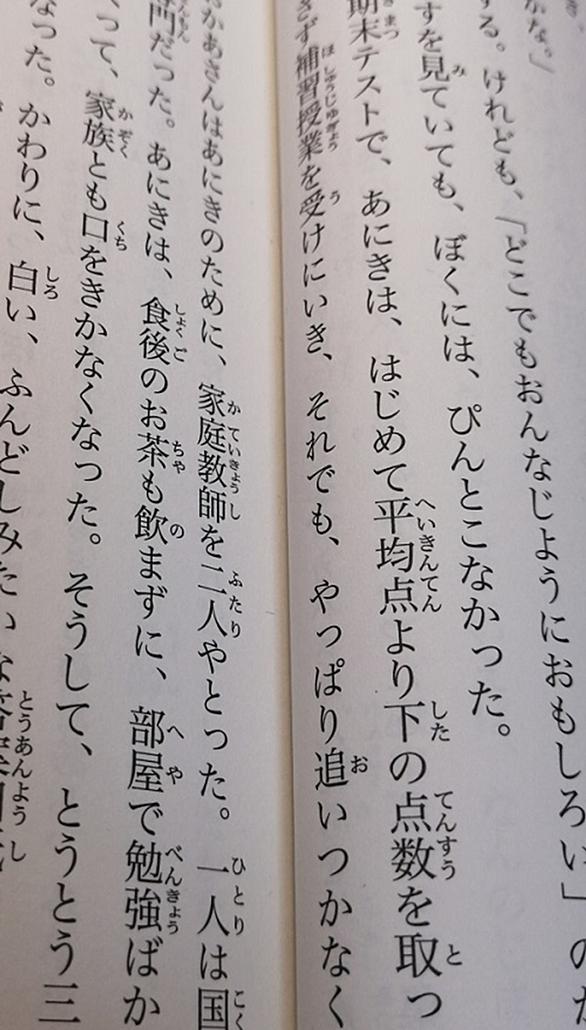 かな。」
する。けれども、「どこでもおんなじようにおもしろい」のた
すを見ていても、ぼくには、ぴんとこなかった。
期末テストで、あにきは、はじめて平均点より下の点数を取っ
きず補習授業を受けにいき、それでも、やっぱり追いつかなく
かあさんはあにきのために、家庭教師を二人やとった。一人は国
専門だった。あにきは、食後のお茶も飲まずに、部屋で勉強ばか
って、家族とも口をきかなくなった。そうして、とうとう三
なった。かわりに、白い、ふんどしみたいな答案用紙